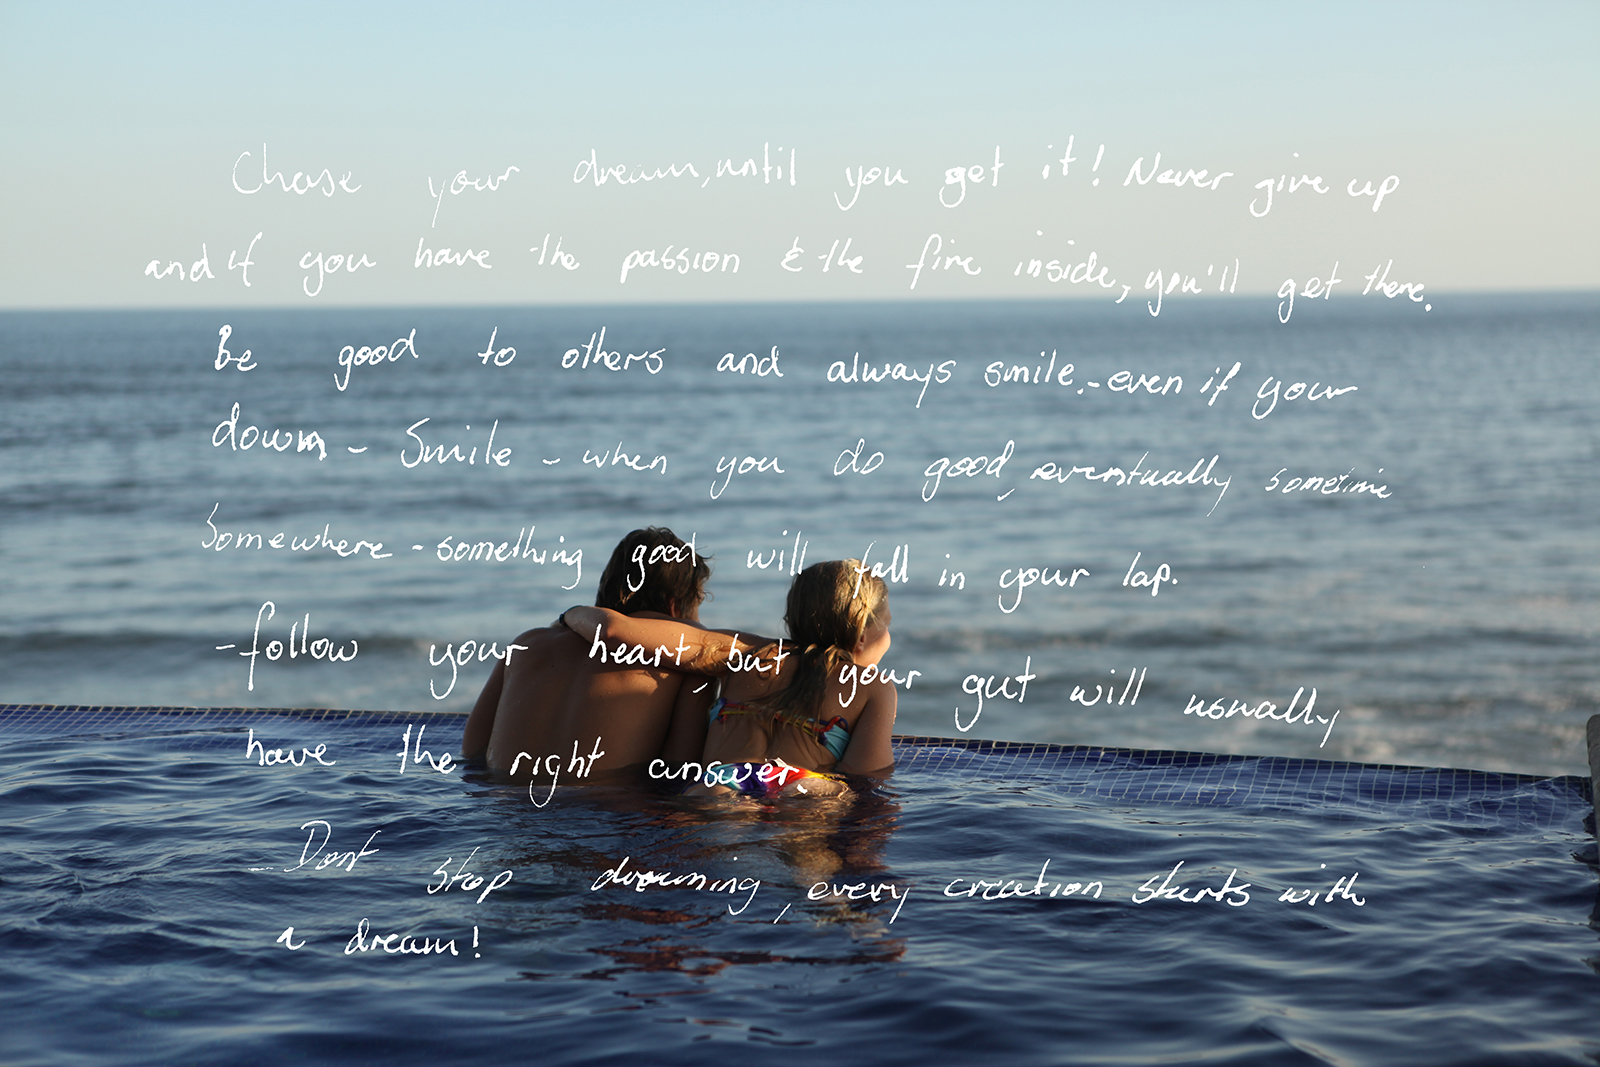 Chase your dream, until you get it! Never give up
and if you have the passion & the fire inside, you'll get there.
Be good to others and always smile.-even if your
down - Smile - when you do good, eventually sometime
Somewhere - something good will fall in your lap.
-follow your heart, but your gut will usually
have the right answer.
- Dont stop dreaming, every creation starts with
a dream!